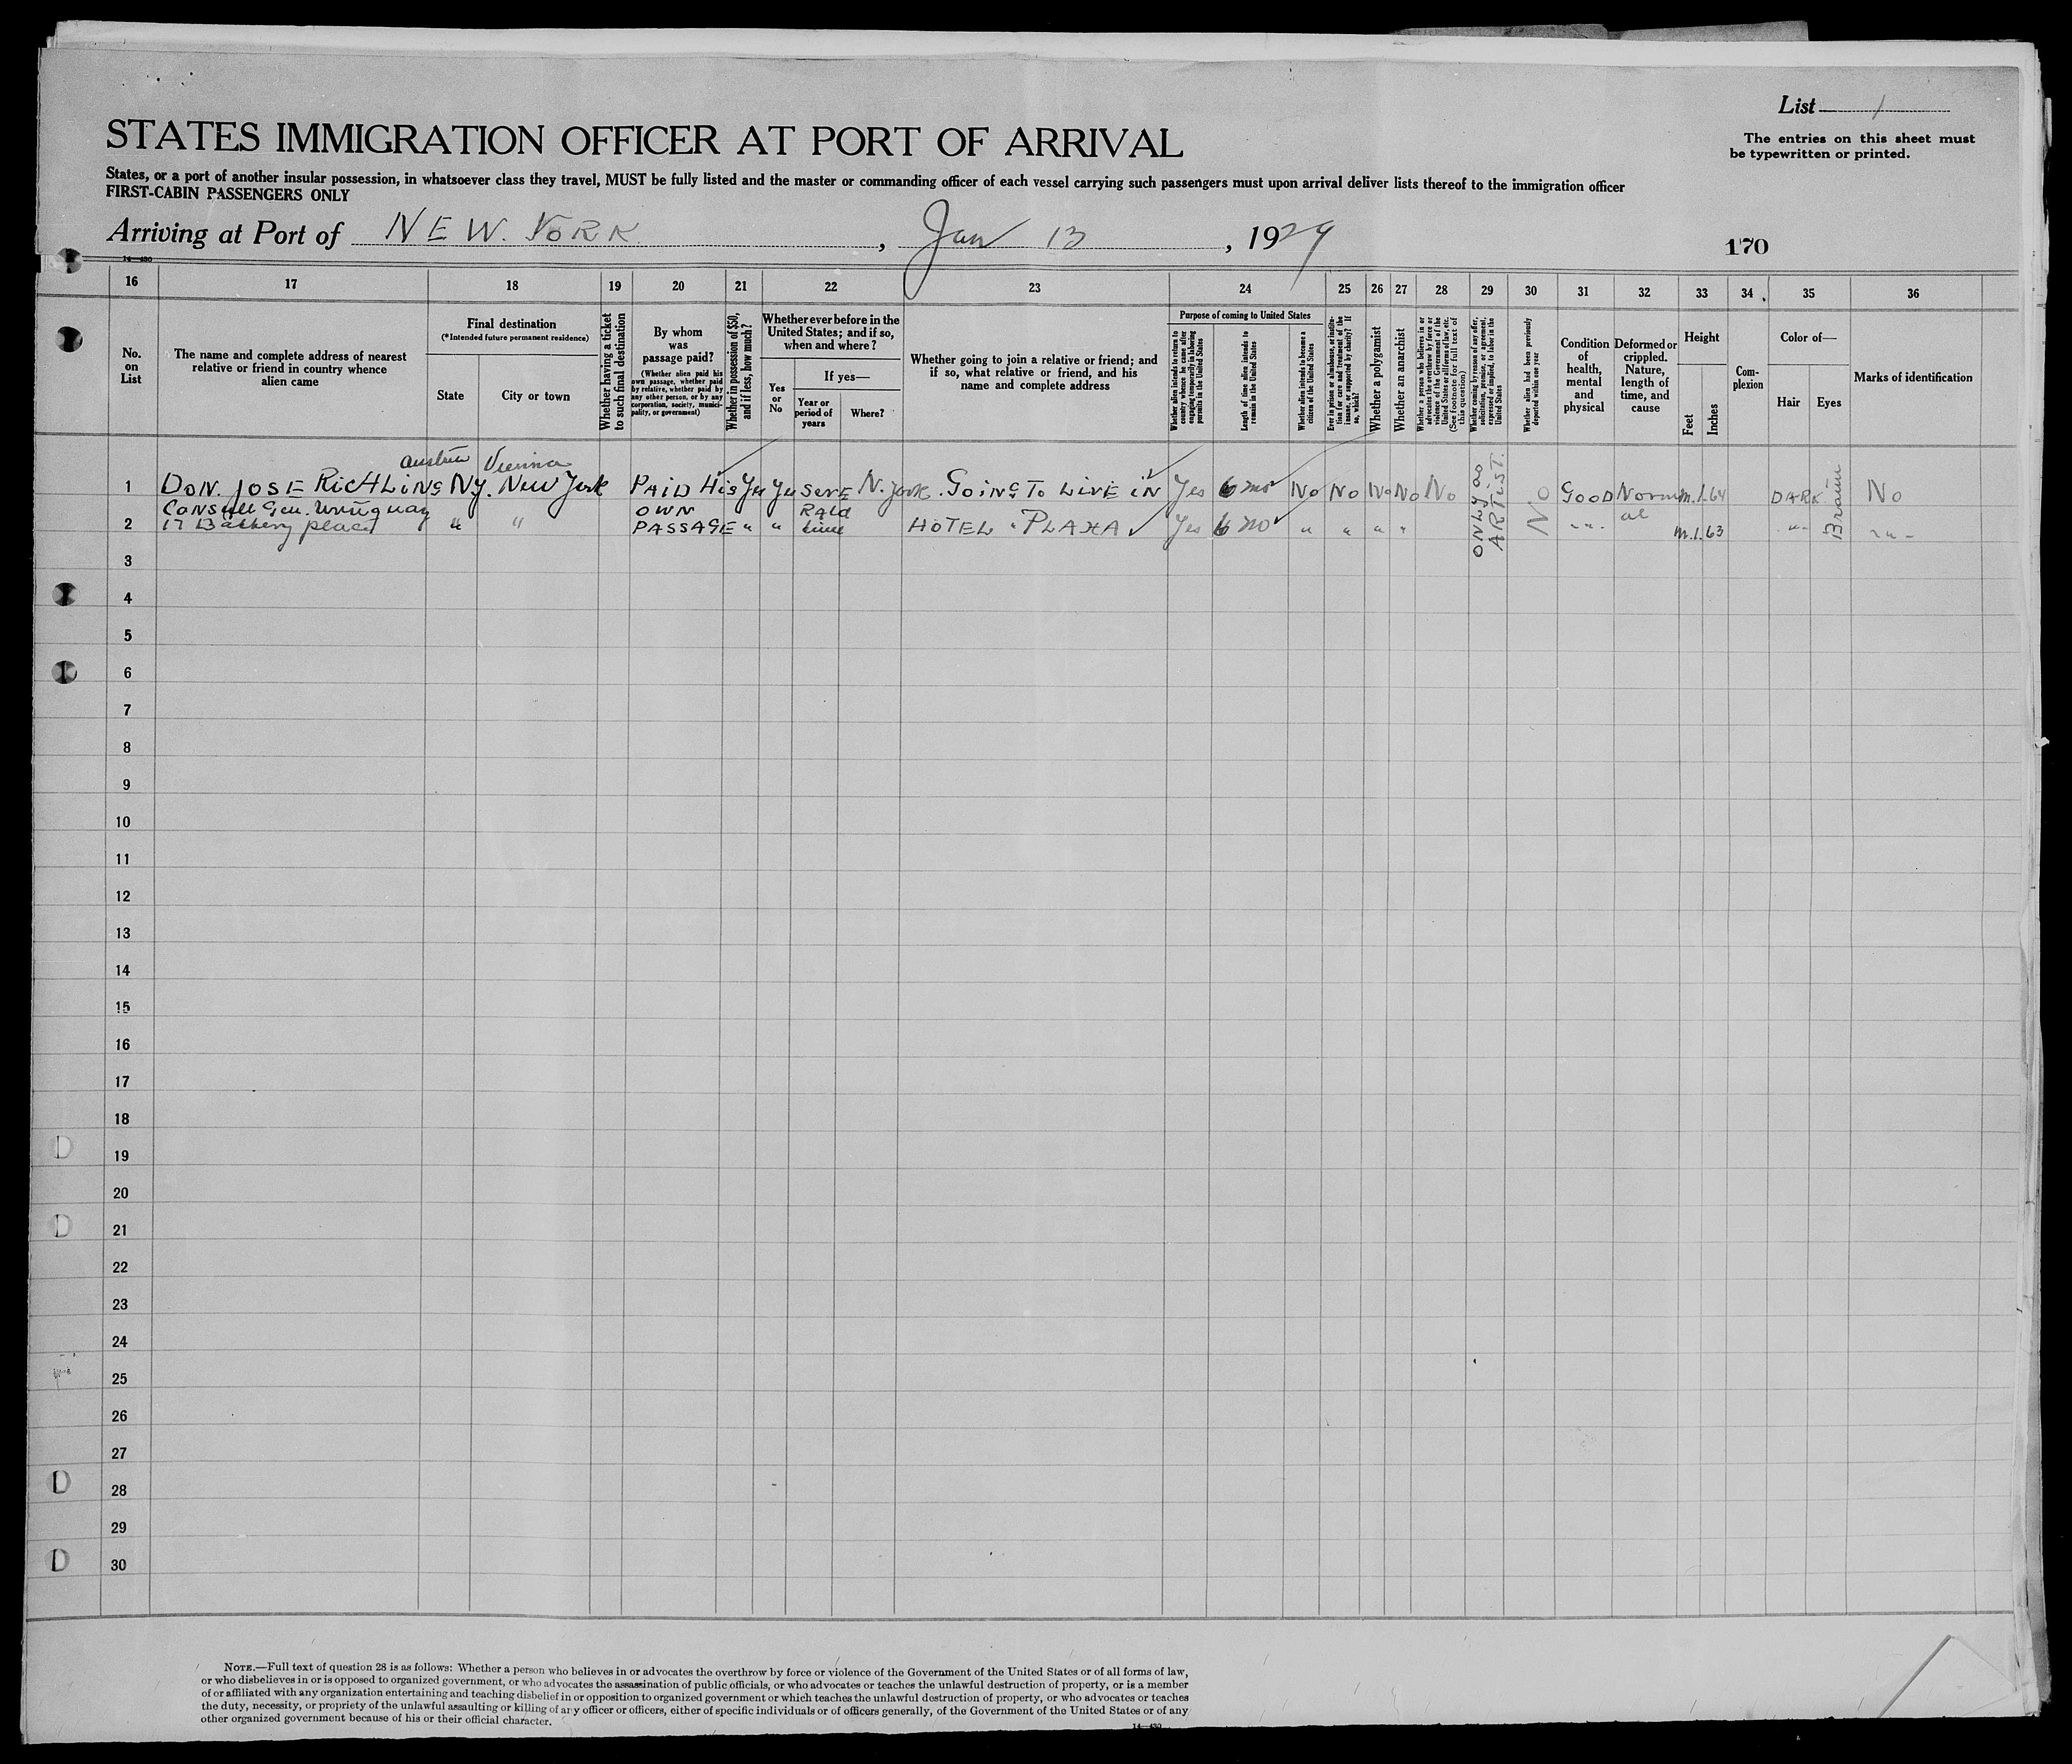 List 1
The entries on this sheet must
be typewritten or printed.
STATES IMMIGRATION OFFICER AT PORT OF ARRIVAL
States, or a port of another insular possession, in whatsoever class they travel, MUST be fully listed and the master or commanding officer of each vessel carrying such passengers must upon arrival deliver lists thereof to the immigration officer
FIRST-CABIN PASSENGERS ONLY
Arriving at Port of NEW. YORK, Jan 13, 1929
170
14—430
16 17 18 19 20 21 22 23 24 25 26 27 28 29 30 31 32 33 34 35 36
No.
on
List
The name and complete address of nearest
relative or friend in country whence
alien came
Final destination
(*Intended future permanent residence)
State
City or town
Whether having a ticket
to such final destination
By whom
was
passage paid?
(Whether alien paid his
own passage, whether paid
by relative, whether paid by
any other person, or by any
corporation, society, munici-
pality, or government)
Whether in possession of $50,
and if less, how much?
Whether ever before in the
United States; and if so,
when and where?
Yes
or
No
If yes—
Year or
period of
years
Where?
Whether going to join a relative or friend; and
if so, what relative or friend, and his
name and complete address
Purpose of coming to United States
Whether alien intends to return to
country whence he came after
engaging temporarily in laboring
pursuits in the United States
Length of time alien intends to
remain in the United States
Whether alien intends to become a
citizen of the United States
Ever in prison or almshouse, or institu-
tion for care and treatment of the
insane, or supported by charity? If
so, which?
Whether a polygamist
Whether an anarchist
Whether a person who believes in or
advocates the overthrow by force or
violence of the Government of the
United States or all forms of law, etc.
(See footnote for full text of
this question)
Whether coming by reason of any offer,
solicitation, promise, or agreement,
expressed or implied, to labor in the
United States
Whether alien had been previously
deported within one year
Condition
of
health,
mental
and
physical
Deformed or
crippled.
Nature,
length of
time, and
cause
Height
Feet
Inches
Com-
plexion
Color of—
Hair
Eyes
Marks of identification
Austria Vienna
1 DON. JOSE RICHLING NY. New York PAID His Yes Yes N. York. GOING TO LIVE IN Yes 6 mo No No No No No ONLY as ARTIST. No GOOD Normal m. 1.64 DARK Brown No
Gen. Uruguay OWN
2 17 Battery place " " PASSAGE " " time HOTEL "PLAZA Yes 6 mo " " " " " m. 1.63 " "
3
4
5
6
7
8
9
10
11
12
13
14
15
16
17
18
19
20
21
22
23
24
25
26
27
28
29
30
NOTE.—Full text of question 28 is as follows: Whether a person who believes in or advocates the overthrow by force or violence of the Government of the United States or of all forms of law,
or who disbelieves in or is opposed to organized government, or who advocates the assassination of public officials, or who advocates or teaches the unlawful destruction of property, or is a member
of or affiliated with any organization entertaining and teaching disbelief in or opposition to organized government or which teaches the unlawful destruction of property, or who advocates or teaches
the duty, necessity, or propriety of the unlawful assaulting or killing of any officer or officers, either of specific individuals or of officers generally, of the Government of the United States or of any
other organized government because of his or their official character.
14—430